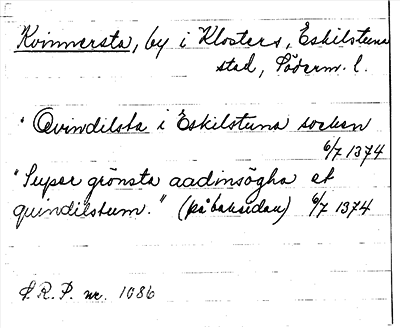 Kvinnersta, by i Klosters, Eskilstuna
stad, Söderm. l.
"Qvindilsta i Eskilstuna socken
6/7 1374
"Super grönsta aadinsögha et
quindilstum." (på baksidan) 6/7 1374
S.R.P. nr. 1086